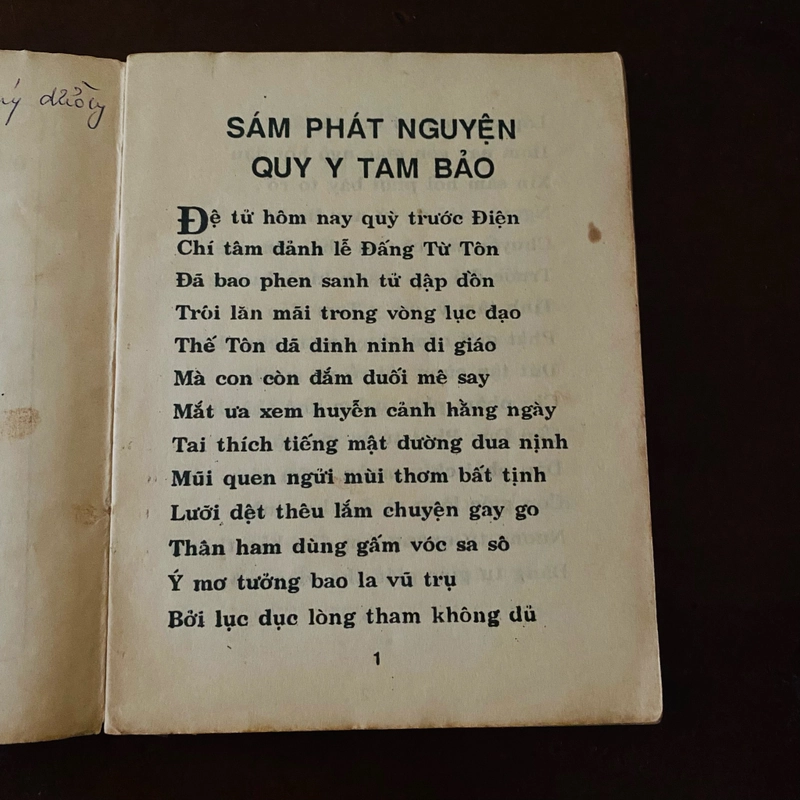 SÁM PHÁT NGUYỆN
QUY Y TAM BẢO
Đệ tử hôm nay quỳ trước Điện
Chí tâm đảnh lễ Đấng Từ Tôn
Đã bao phen sanh tử dập dồn
Trôi lăn mãi trong vòng lục đạo
Thế Tôn đã đinh ninh di giáo
Mà con còn đắm đuối mê say
Mắt ưa xem huyễn cảnh hằng ngày
Tai thích tiếng mật đường dua nịnh
Mũi quen ngửi mùi thơm bất tịnh
Lưỡi dệt thêu lắm chuyện gay go
Thân ham dùng gấm vóc sa sô
Ý mơ tưởng bao la vũ trụ
Bởi lục dục lòng tham không đủ
1